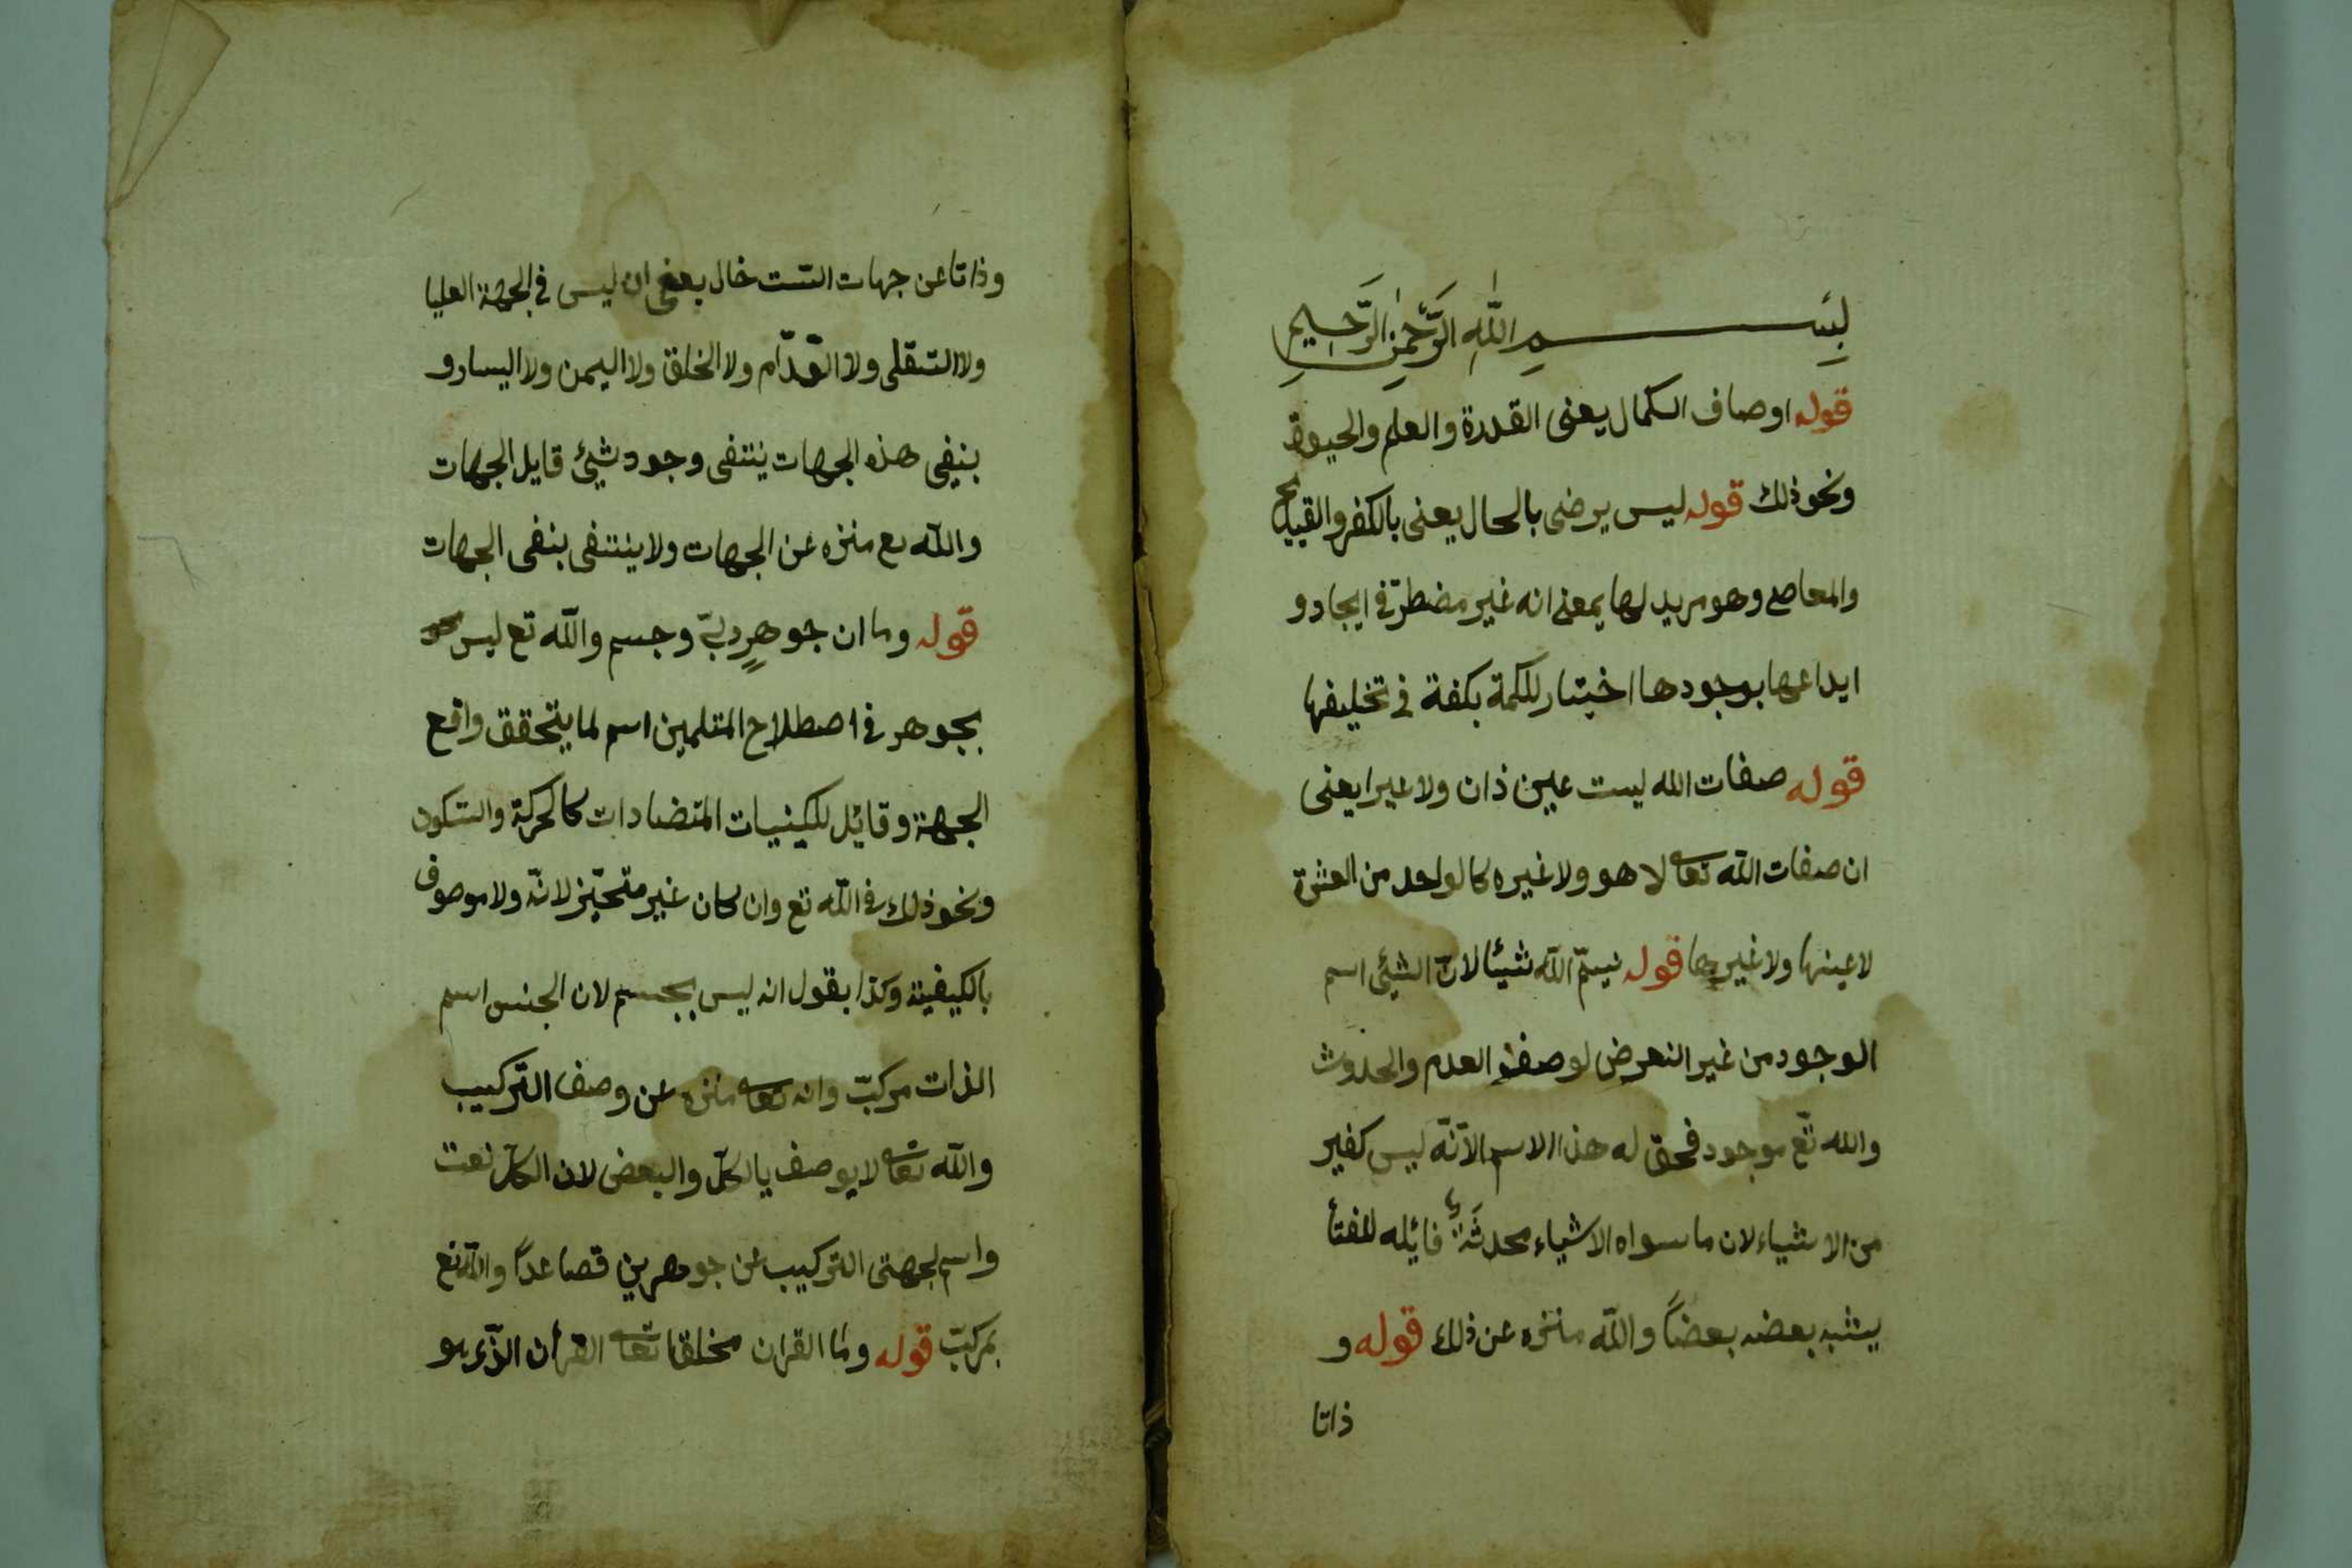 بِسْمِ اللّٰهِ الرَّحْمٰنِ الرَّحِيمِ
قوله اوصاف الكمال يعنى القدرة والعلم والحيوة
ونحو ذلك قوله ليس يرضى بالمحال يعنى بالكفر والقبيح
والمعاصى وهو مريد لها بمعنى انه غير مضطرّ فى ايجاد و
ايداعها بوجودها اختيار للكمة بكفة فى تخليفها
قوله صفات الله ليست عين ذات ولا غيرا يعنى
ان صفات اللّه تعا لا هو ولا غيره كالواحد من العشرة
لا عينها ولا غيرها قوله نسمّ اللّه شيئا لانّ الشيئ اسم
الوجود من غير التعرض لوصف العدم والحدوث
والله تّع موجود فحق له هذا الاسم الاّ انّه ليس كغير
من الاشياء لان ما سواه الاشياء محدثة قائله للفنأ
يشبه بعضه بعضاً واللّه منزه عن ذلك قوله و
ذاتا
وذاتا عن جهات السّت خال يعنى ان ليس فى الجهة العليا
ولا السّفلى ولا القدّام ولا الخلف ولا اليمن ولا اليسار و
بنفى هذه الجهات ينتفى وجود شيئ قايل الجهات
واللّه تع منزه عن الجهات ولا ينتفى بنفى الجهات
قوله وما ان جوهرٍ ربّ وجسم واللّه تع ليس
بجوهر فى اصطلاح المتلمين اسم لما يتحقق واقع
الجهة وقائل للكيفيات المتضادات كالحركة والسّكون
ونحو ذلك فى اللّه تع وان كان غير متحيّز لانّه ولا موصوف
بالكيفية وكذا بقول انه ليس بجسم لان الجنس اسم
الذات مركبّ وانه تعا منزه عن وصف التّركيب
واللّه تعا لا يوصف بالكلّ والبعض لان الكلّ نعت
واسم لجهتى التركيب عن جوهرين فصاعداً واللّه تع
بمركبّ قوله وما القران مخلقا تعا القرأن الذّى هو